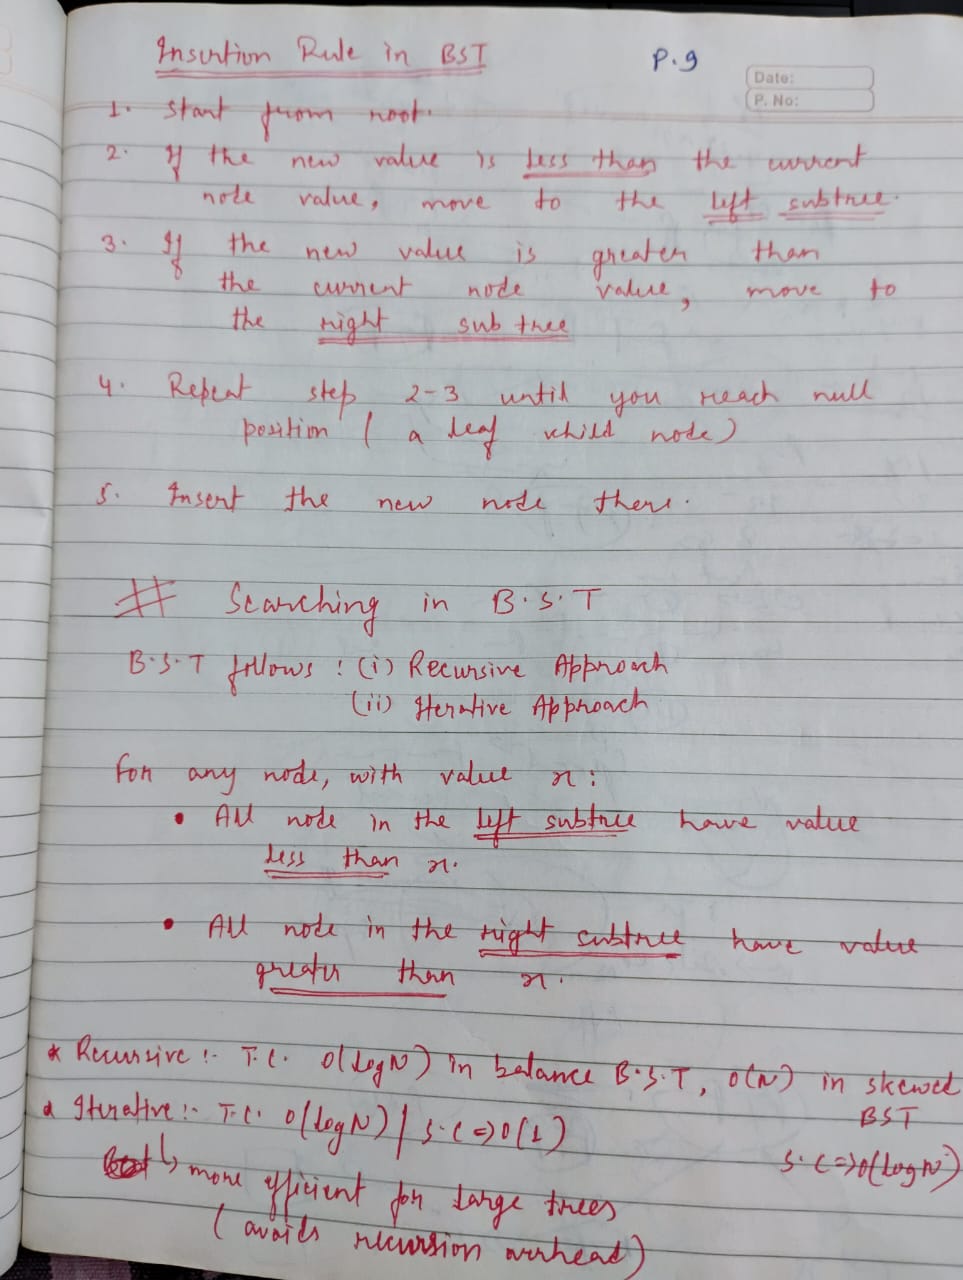 Insertion Rule in BST
P.9
Date:
P. No:
1. Start from root.
2. If the new value is less than the current
node value, move to the left subtree.
3. If the new value is greater than
the current node value, move to
the right sub tree
4. Repeat step 2-3 until you reach null
position ( a leaf child node)
5. Insert the new node there.
# Searching in B.S.T
B.S.T follows : (i) Recursive Approach
(ii) Iterative Approach
for any node, with value x :
• All node in the left subtree have value
less than x.
• All node in the right subtree have value
greater than x.
* Recursive :- T.C. O(log N) in balance B.S.T, O(N) in skewed
BST
S.C => O(log N)
* Iterative :- T.C. O(log N) | S.C => O(1)
↳ more efficient for large trees
( avoids recursion overhead)